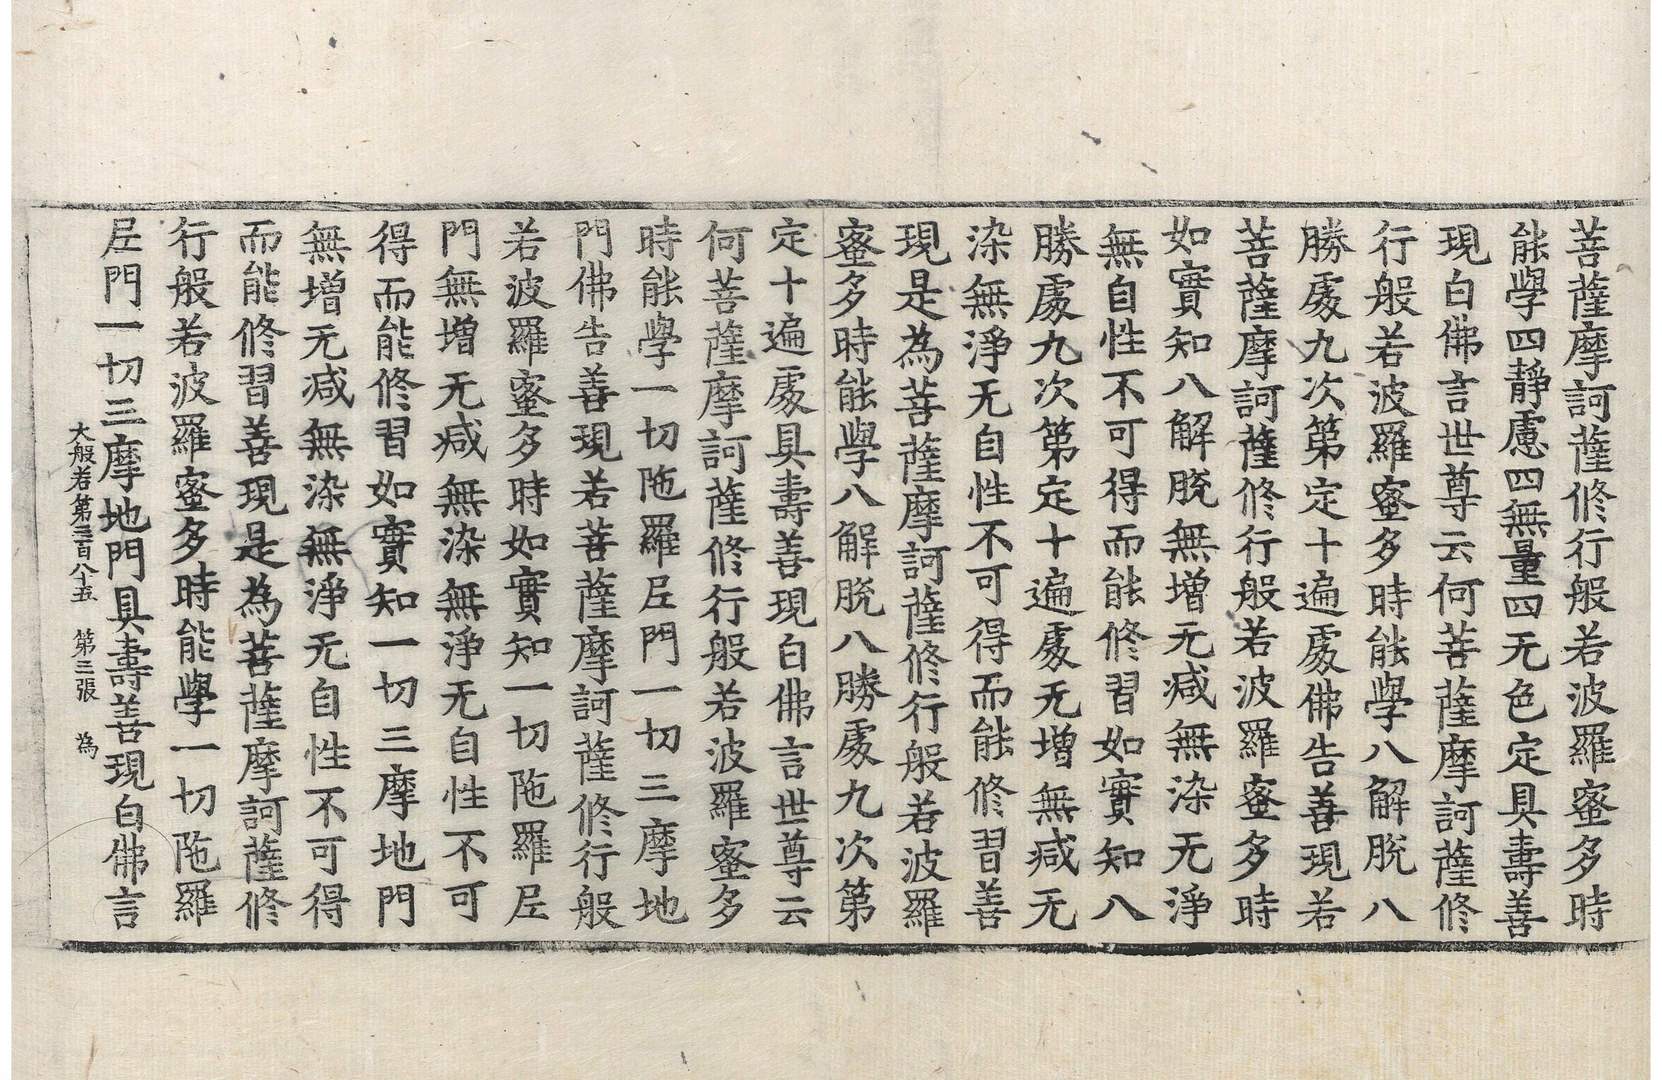 菩薩摩訶薩修行般若波羅蜜多時
能學四靜慮四無量四无色定具壽善
現白佛言世尊云何菩薩摩訶薩修
行般若波羅蜜多時能學八解脫八
勝處九次第定十遍處佛告善現若
菩薩摩訶薩修行般若波羅蜜多時
如實知八解脫無增无减無染无淨
無自性不可得而能修習如實知八
勝處九次第定十遍處无增無减无
染無淨无自性不可得而能修習善
現是為菩薩摩訶薩修行般若波羅
蜜多時能學八解脫八勝處九次第
定十遍處具壽善現白佛言世尊云
何菩薩摩訶薩修行般若波羅蜜多
時能學一切陁羅尼門一切三摩地
門佛告善現若菩薩摩訶薩修行般
若波羅蜜多時如實知一切陁羅尼
門無增无减無染無淨无自性不可
得而能修習如實知一切三摩地門
無增无减無染無淨无自性不可得
而能修習善現是為菩薩摩訶薩修
行般若波羅蜜多時能學一切陁羅
尼門一切三摩地門具壽善現白佛言
大般若第三百八十五 第三張 為